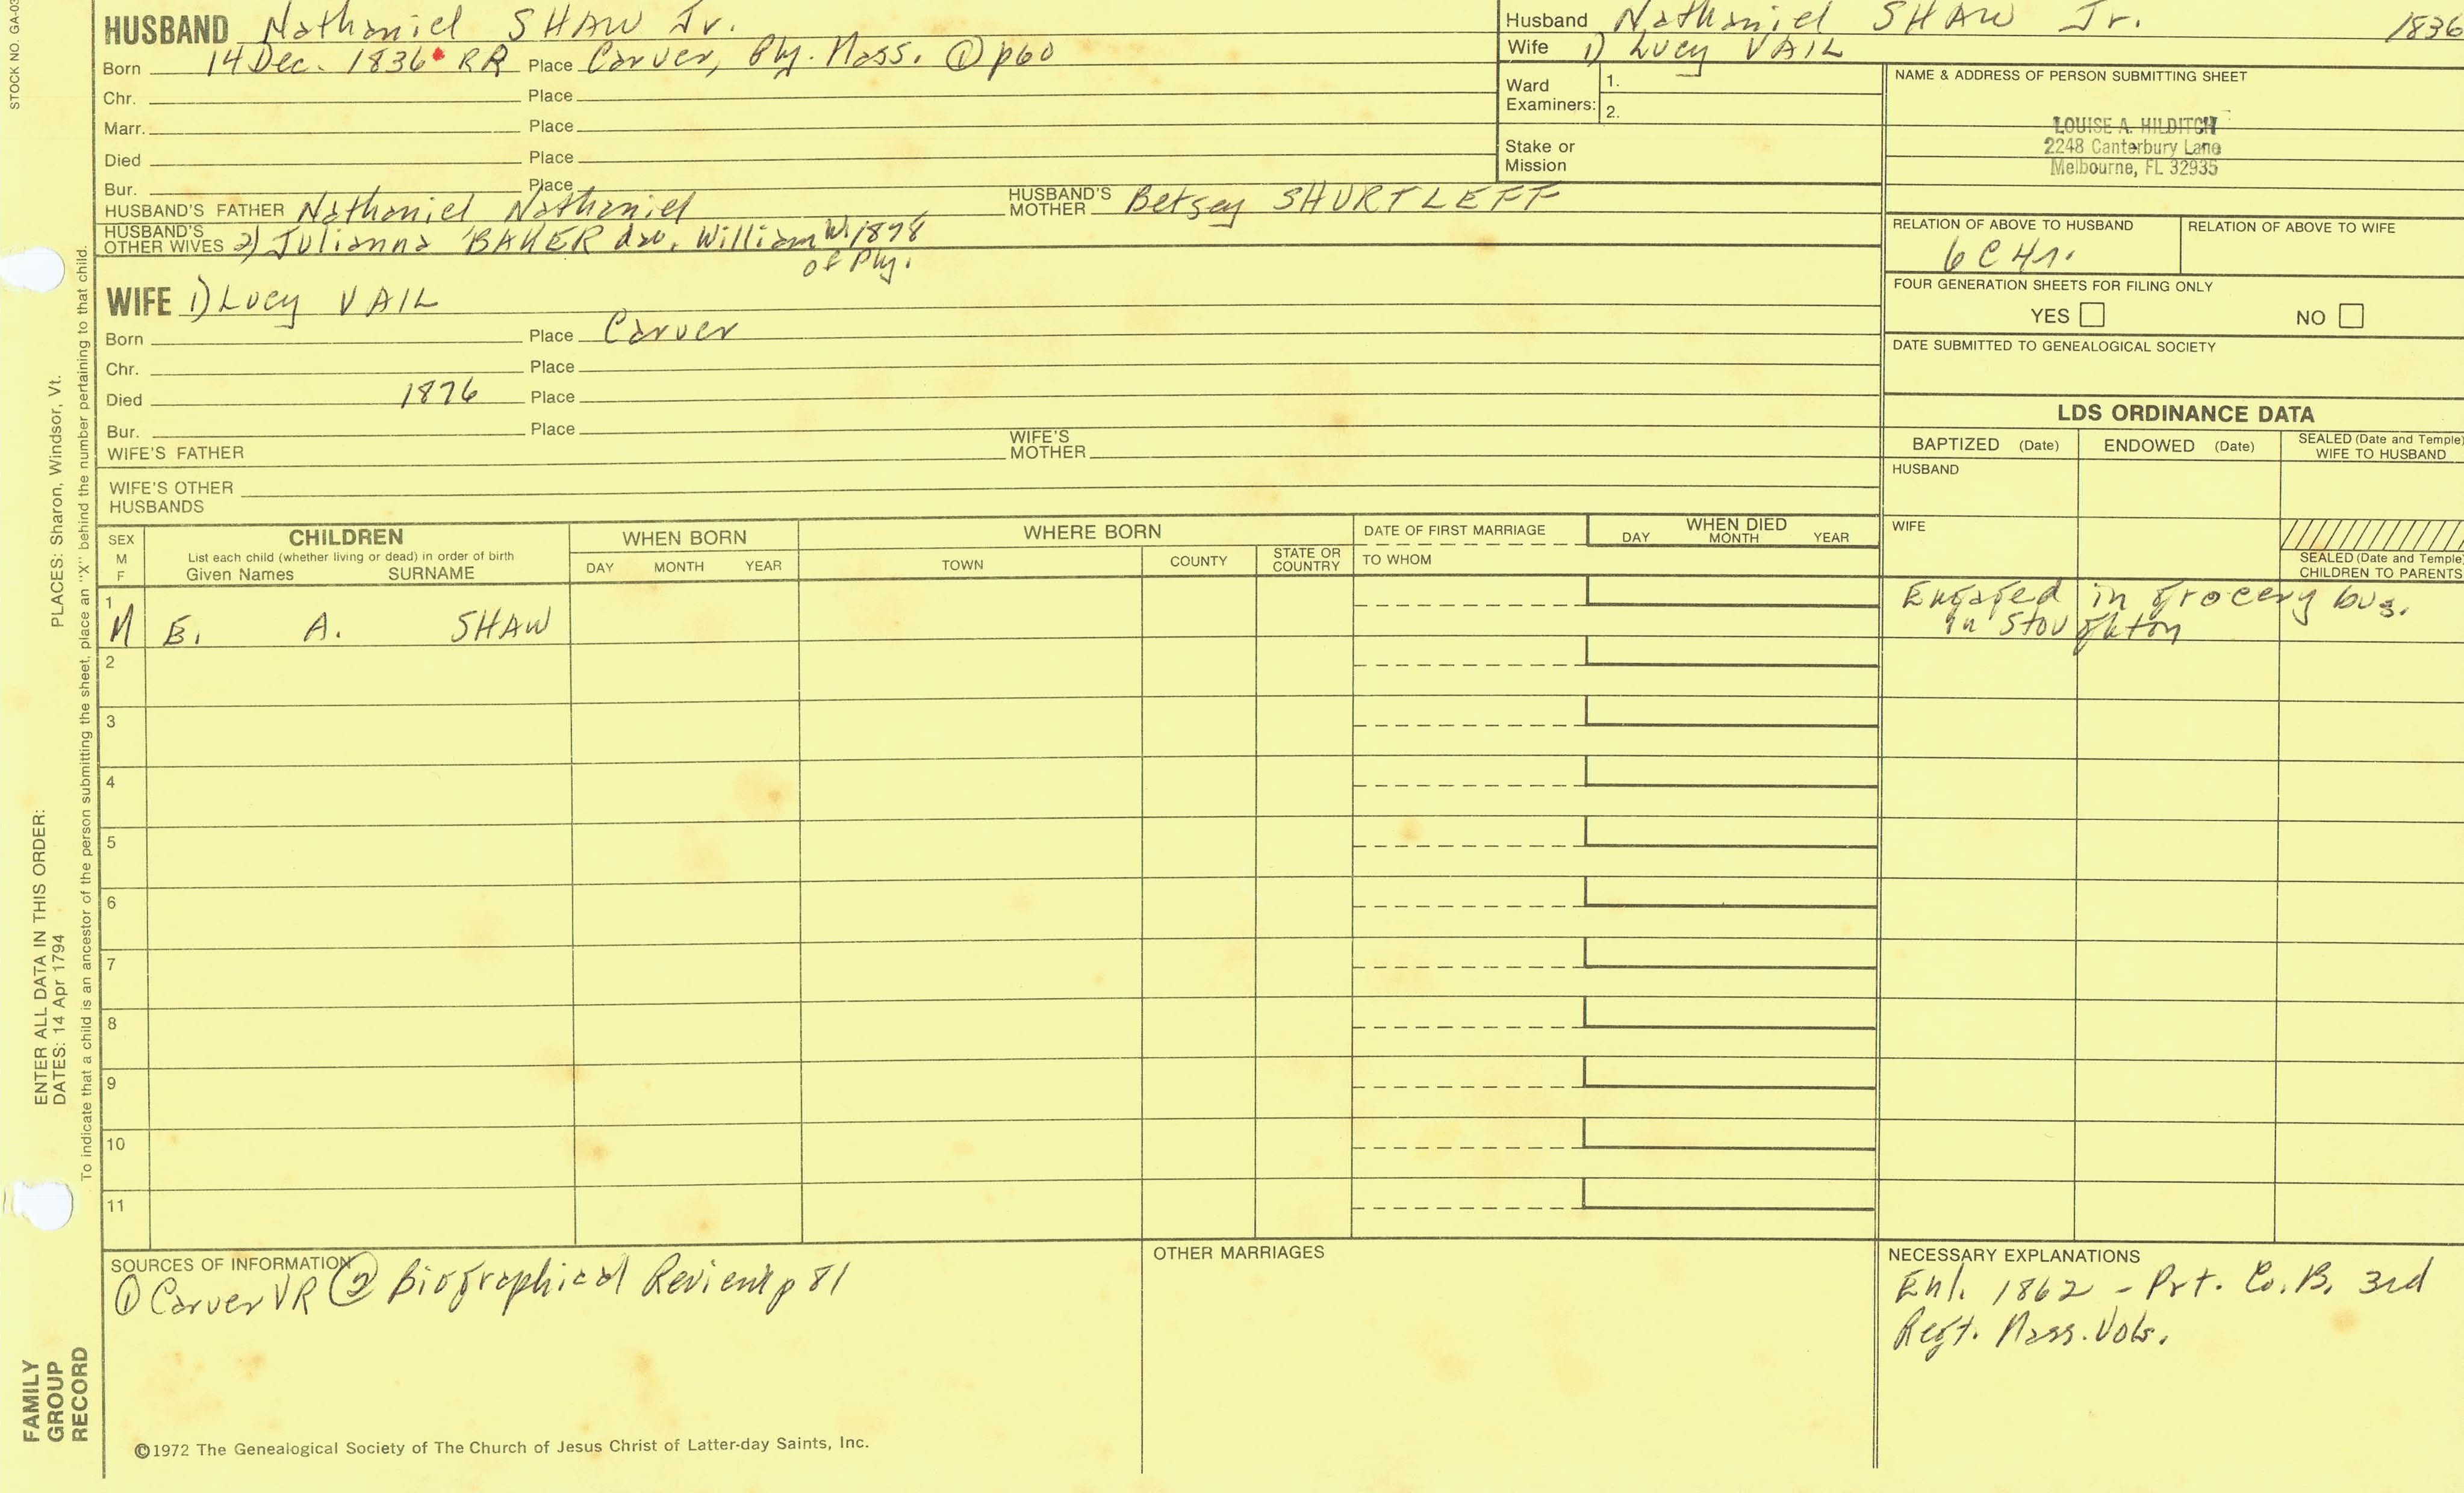 STOCK NO. GA-03
HUSBAND Nathaniel SHAW Jr.
Born 14 Dec. 1836 RR Place Carver, Ply. Mass. ① p60
Chr. Place
Marr. Place
Died Place
Bur. Place
HUSBAND'S FATHER Nathaniel Nathaniel HUSBAND'S MOTHER Betsey SHURTLEFF
HUSBAND'S OTHER WIVES 2) Julianna BAKER dau. William W. 1878
of Ply.
WIFE 1) Lucy VAIL
Born Place Carver
Chr. Place
Died 1876 Place
Bur. Place
WIFE'S FATHER WIFE'S MOTHER
WIFE'S OTHER HUSBANDS
Husband Nathaniel SHAW Jr. 1836
Wife 1) Lucy VAIL
Ward Examiners: 1.
2.
Stake or Mission
NAME & ADDRESS OF PERSON SUBMITTING SHEET
LOUISE A. HILDITCH
2248 Canterbury Lane
Melbourne, FL 32935
RELATION OF ABOVE TO HUSBAND RELATION OF ABOVE TO WIFE
6C4r.
FOUR GENERATION SHEETS FOR FILING ONLY
YES NO
DATE SUBMITTED TO GENEALOGICAL SOCIETY
LDS ORDINANCE DATA
BAPTIZED (Date) ENDOWED (Date) SEALED (Date and Temple) WIFE TO HUSBAND
HUSBAND
WIFE
SEALED (Date and Temple) CHILDREN TO PARENTS
SEX M F
CHILDREN
List each child (whether living or dead) in order of birth
Given Names SURNAME
WHEN BORN
DAY MONTH YEAR
WHERE BORN
TOWN COUNTY STATE OR COUNTRY
DATE OF FIRST MARRIAGE
TO WHOM
WHEN DIED
DAY MONTH YEAR
1
M E. A. SHAW
Engaged in grocery bus.
in Stoughton
2
3
4
5
6
7
8
9
10
11
SOURCES OF INFORMATION
① Carver VR ② Biographical Review p 81
OTHER MARRIAGES
NECESSARY EXPLANATIONS
Enl. 1862 - Prt. Co. B. 3rd
Regt. Mass. Vols.
©1972 The Genealogical Society of The Church of Jesus Christ of Latter-day Saints, Inc.
FAMILY
GROUP
RECORD
ENTER ALL DATA IN THIS ORDER:
DATES: 14 Apr 1794
PLACES: Sharon, Windsor, Vt.
To indicate that a child is an ancestor of the person submitting the sheet, place an "X" behind the number pertaining to that child.